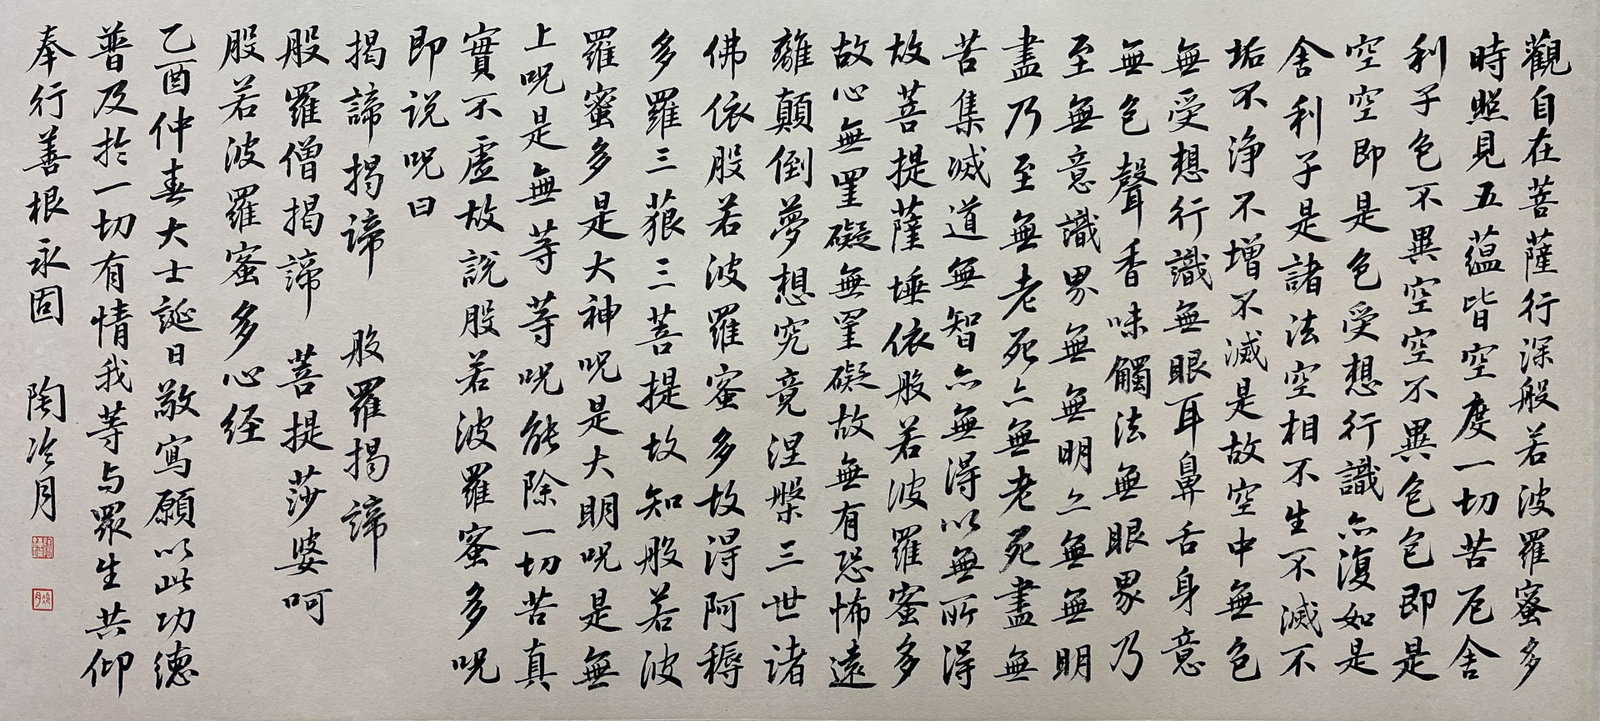 觀自在菩薩行深般若波羅蜜多
時照見五蘊皆空度一切苦厄舍
利子色不異空空不異色色即是
空空即是色受想行識亦復如是
舍利子是諸法空相不生不滅不
垢不淨不增不滅是故空中無色
無受想行識無眼耳鼻舌身意
無色聲香味觸法無眼界乃
至無意識界無無明亦無無明
盡乃至無老死亦無老死盡無
苦集滅道無智亦無得以無所得
故菩提薩埵依般若波羅蜜多
故心無罣礙無罣礙故無有恐怖遠
離顛倒夢想究竟涅槃三世諸
佛依般若波羅蜜多故得阿耨
多羅三藐三菩提故知般若波
羅蜜多是大神呪是大明呪是無
上呪是無等等呪能除一切苦真
實不虛故說般若波羅蜜多呪
即说呪曰
揭諦揭諦 般羅揭諦
般羅僧揭諦 菩提莎婆呵
般若波羅蜜多心经
乙酉仲春大士誕日敬寫願以此功德
普及於一切有情我等与眾生共仰
奉行善根永固 陶冷月